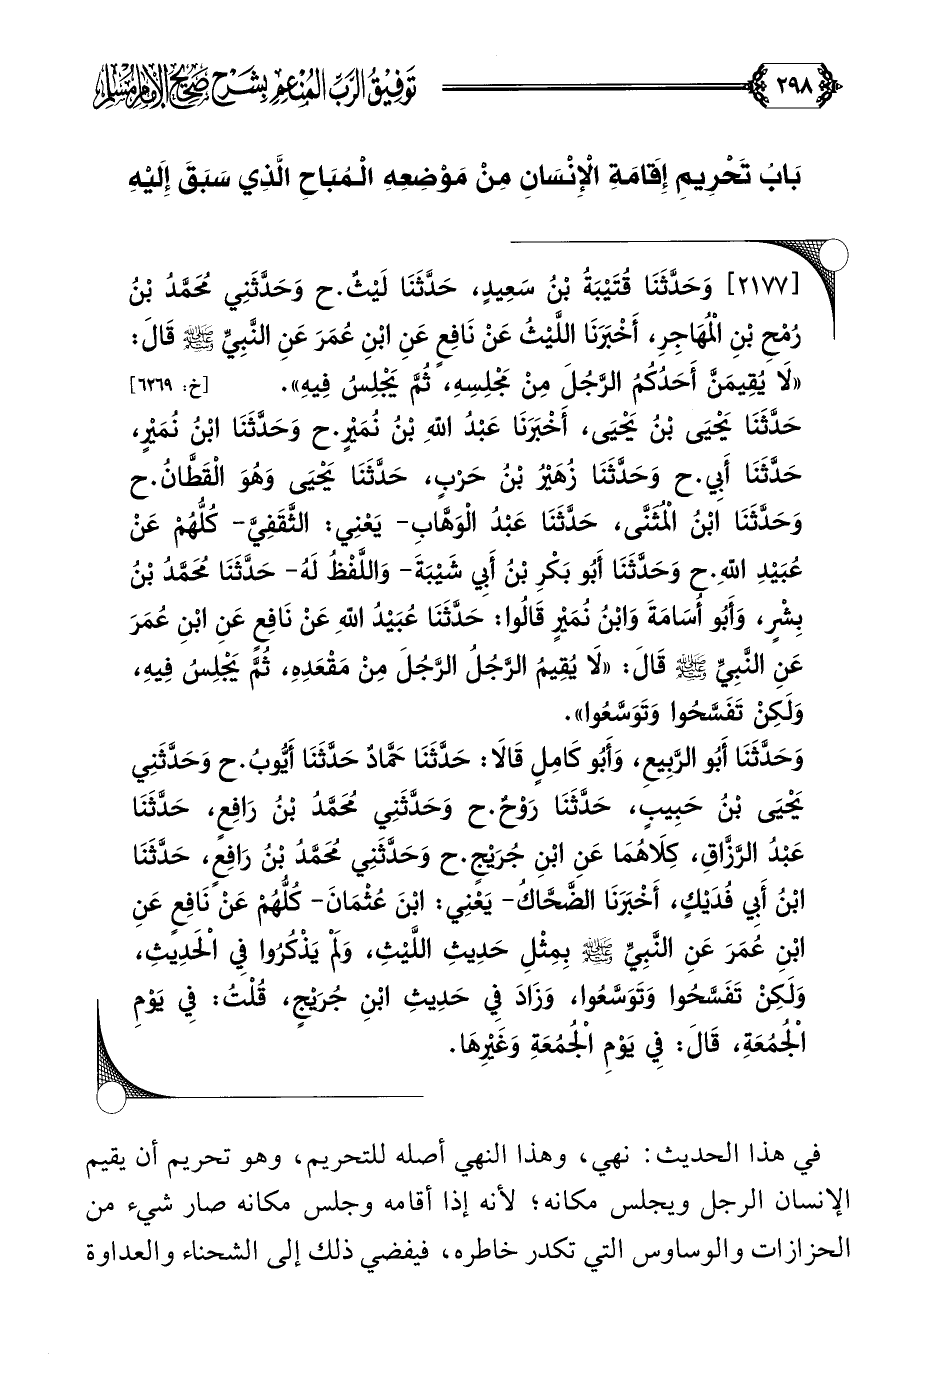 ٢٩٨ توفيق الرب المنعم بشرح صحيح الإمام مسلم
بَابُ تَحْرِيمِ إِقَامَةِ الْإِنْسَانِ مِنْ مَوْضِعِهِ الْمُبَاحِ الَّذِي سَبَقَ إِلَيْهِ
[٢١٧٧] وَحَدَّثَنَا قُتَيْبَةُ بْنُ سَعِيدٍ، حَدَّثَنَا لَيْثٌ.ح وَحَدَّثَنِي مُحَمَّدُ بْنُ
رُمْحِ بْنِ الْمُهَاجِرِ، أَخْبَرَنَا اللَّيْثُ عَنْ نَافِعٍ عَنِ ابْنِ عُمَرَ عَنِ النَّبِيِّ ﷺ قَالَ:
«لَا يُقِيمَنَّ أَحَدُكُمُ الرَّجُلَ مِنْ مَجْلِسِهِ، ثُمَّ يَجْلِسُ فِيهِ». [خ: ٦٢٦٩]
حَدَّثَنَا يَحْيَى بْنُ يَحْيَى، أَخْبَرَنَا عَبْدُ اللهِ بْنُ نُمَيْرٍ.ح وَحَدَّثَنَا ابْنُ نُمَيْرٍ،
حَدَّثَنَا أَبِي.ح وَحَدَّثَنَا زُهَيْرُ بْنُ حَرْبٍ، حَدَّثَنَا يَحْيَى وَهُوَ الْقَطَّانُ.ح
وَحَدَّثَنَا ابْنُ الْمُثَنَّى، حَدَّثَنَا عَبْدُ الْوَهَّابِ- يَعْنِي: الثَّقَفِيَّ- كُلُّهُمْ عَنْ
عُبَيْدِ اللهِ.ح وَحَدَّثَنَا أَبُو بَكْرِ بْنُ أَبِي شَيْبَةَ- وَاللَّفْظُ لَهُ- حَدَّثَنَا مُحَمَّدُ بْنُ
بِشْرٍ، وَأَبُو أُسَامَةَ وَابْنُ نُمَيْرٍ قَالُوا: حَدَّثَنَا عُبَيْدُ اللهِ عَنْ نَافِعٍ عَنِ ابْنِ عُمَرَ
عَنِ النَّبِيِّ ﷺ قَالَ: «لَا يُقِيمُ الرَّجُلُ الرَّجُلَ مِنْ مَقْعَدِهِ، ثُمَّ يَجْلِسُ فِيهِ،
وَلَكِنْ تَفَسَّحُوا وَتَوَسَّعُوا».
وَحَدَّثَنَا أَبُو الرَّبِيعِ، وَأَبُو كَامِلٍ قَالَا: حَدَّثَنَا حَمَّادٌ حَدَّثَنَا أَيُّوبُ.ح وَحَدَّثَنِي
يَحْيَى بْنُ حَبِيبٍ، حَدَّثَنَا رَوْحٌ.ح وَحَدَّثَنِي مُحَمَّدُ بْنُ رَافِعٍ، حَدَّثَنَا
عَبْدُ الرَّزَّاقِ، كِلَاهُمَا عَنِ ابْنِ جُرَيْجٍ.ح وَحَدَّثَنِي مُحَمَّدُ بْنُ رَافِعٍ، حَدَّثَنَا
ابْنُ أَبِي فُدَيْكٍ، أَخْبَرَنَا الضَّحَّاكُ- يَعْنِي: ابْنَ عُثْمَانَ- كُلُّهُمْ عَنْ نَافِعٍ عَنِ
ابْنِ عُمَرَ عَنِ النَّبِيِّ ﷺ بِمِثْلِ حَدِيثِ اللَّيْثِ، وَلَمْ يَذْكُرُوا فِي الْحَدِيثِ،
وَلَكِنْ تَفَسَّحُوا وَتَوَسَّعُوا، وَزَادَ فِي حَدِيثِ ابْنِ جُرَيْجٍ، قُلْتُ: فِي يَوْمِ
الْجُمُعَةِ، قَالَ: فِي يَوْمِ الْجُمُعَةِ وَغَيْرِهَا.
في هذا الحديث: نهي، وهذا النهي أصله للتحريم، وهو تحريم أن يقيم
الإنسان الرجل ويجلس مكانه؛ لأنه إذا أقامه وجلس مكانه صار شيء من
الحزازات والوساوس التي تكدر خاطره، فيفضي ذلك إلى الشحناء والعداوة